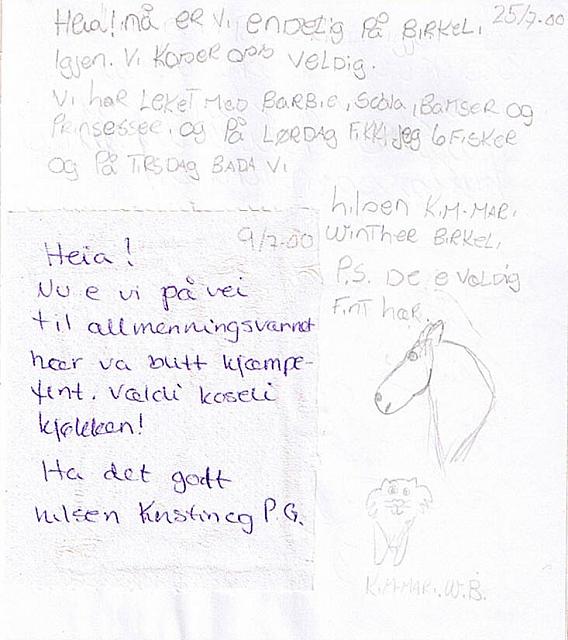 25/7-00
Heia! nå er vi endelig på Birkel,
Igjen. Vi koser oss veldig.
Vi har leket med Barbie, Scala, Bamser og
Prinsesser, og på Lørdag fikk jeg 6 fisker
og på Tirsdag bada vi
hilsen K.M-Mari,
Winther Birkel,
P.S. De e veldig
fint her.
9/7-00
Heia!
Nu e vi på vei
til allmenningsvannet
hær va blitt kjæmpe-
fint. Vældi koseli
kjøkken!
Ha det godt
hilsen Kirstin og P.G.
K.M-Mari. W.B.